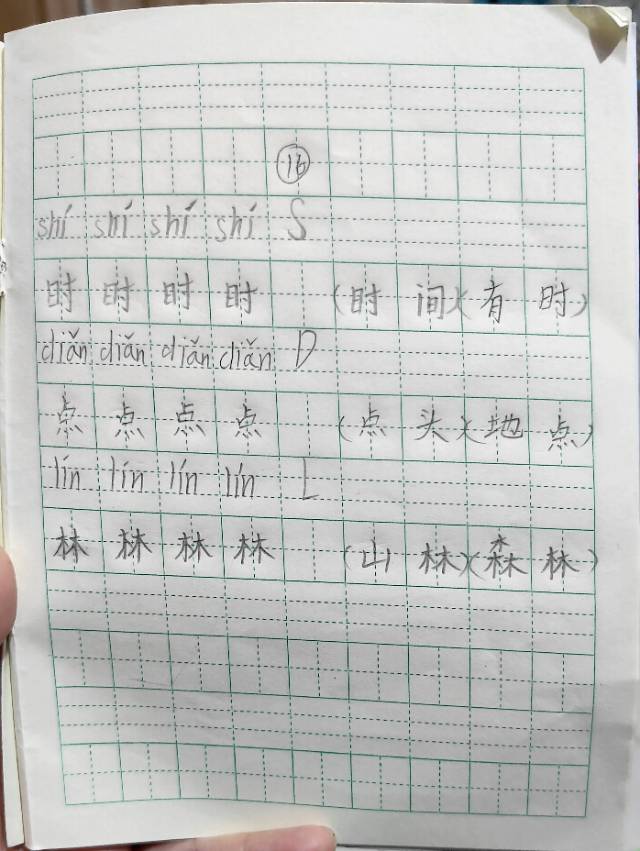 16
shí shí shí shí S
时 时 时 时 (时间)(有时)
diǎn diǎn diǎn diǎn D
点 点 点 点 (点头)(地点)
lín lín lín lín L
林 林 林 林 (山林)(森林)